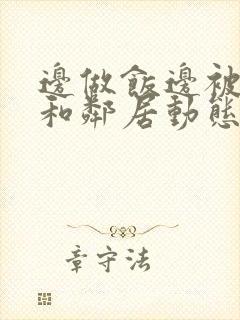 邊做飯邊被
和鄰居動態
章守法